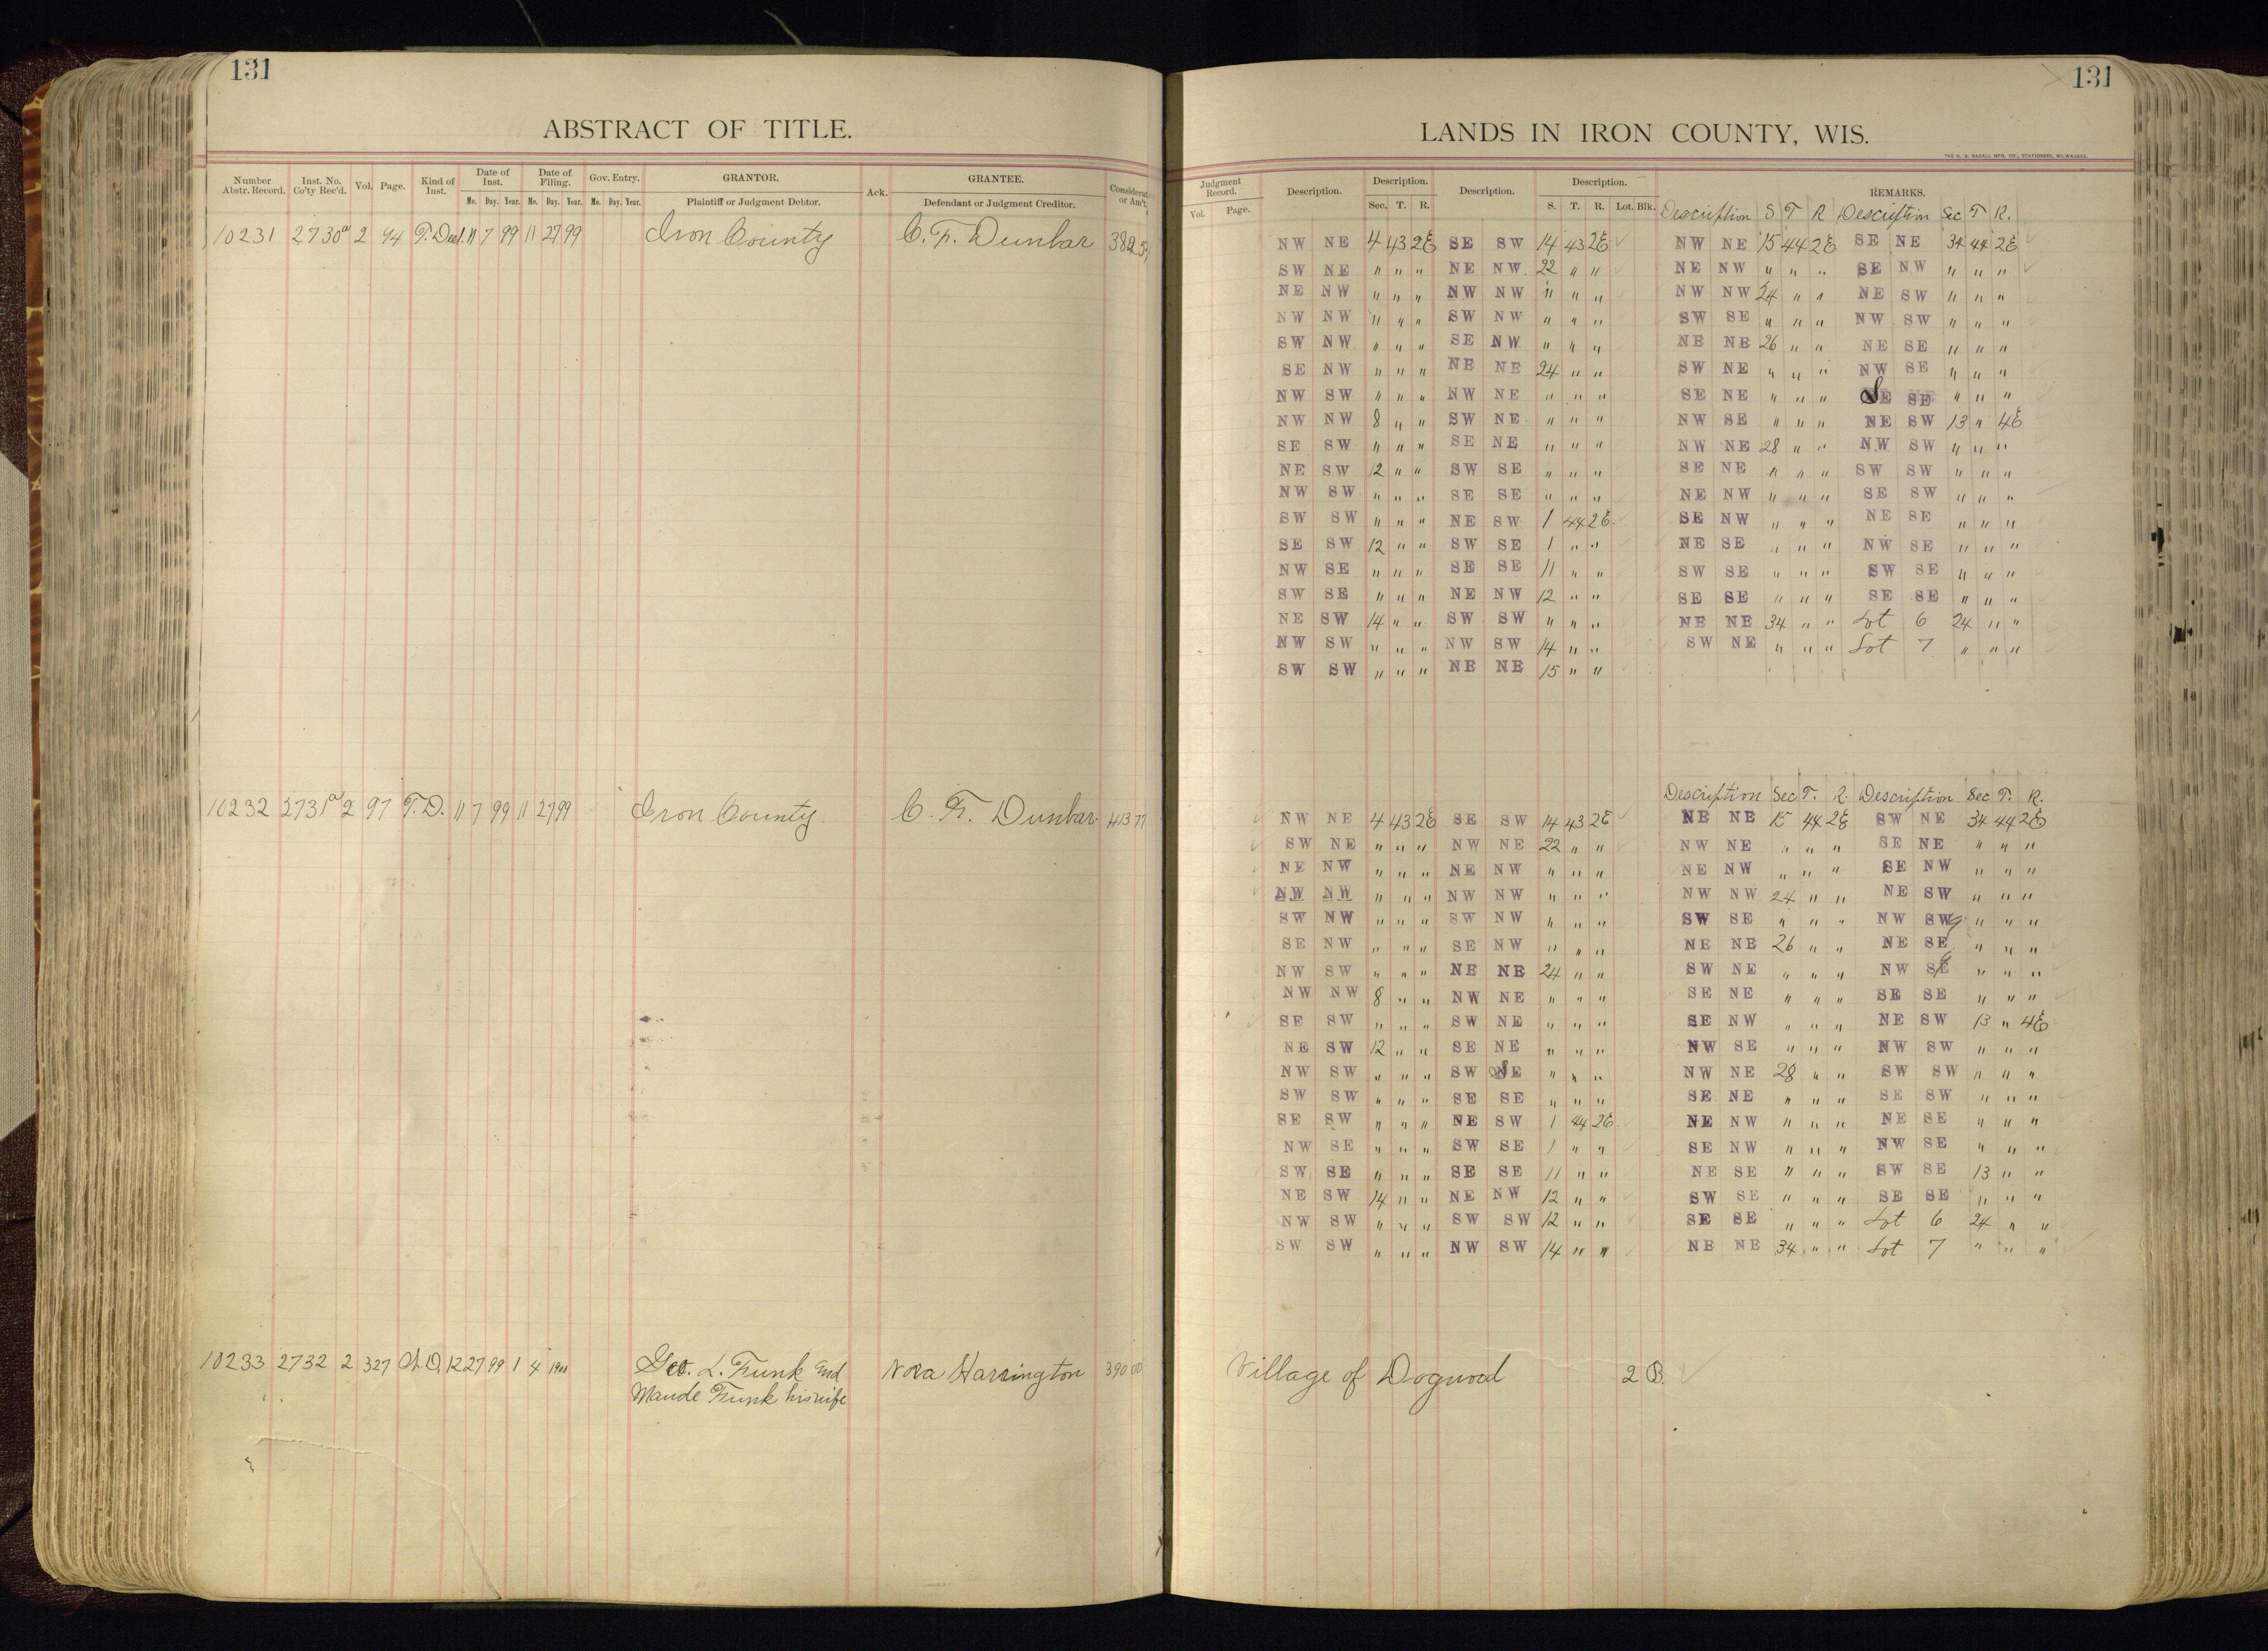 131
ABSTRACT OF TITLE.
Number Abstr. Record. Inst. No. Co'ty Rec'd. Vol. Page. Kind of Inst. Date of Inst. Mo. Day. Year. Date of Filing. Mo. Day. Year. Gov. Entry. Mo. Day. Year. GRANTOR. Plaintiff or Judgment Debtor. Ack. GRANTEE. Defendant or Judgment Creditor.
10231 2730a 2 94 T. Deed. 11 7 99 11 27 99 Iron County C. F. Dunbar
10232 2731a 2 97 T. D. 11 7 99 11 27 99 Iron County C. F. Dunbar. 413 77
10233 2732 2 327 12 27 99 1 4 1900 Geo. L. Funk and Nora Harrington 390 00
Maude Funk his wife
131
LANDS IN IRON COUNTY, WIS.
Judgment Record. Vol. Page. Description. Description. Sec. T. R. Description. Description. S. T. R. Lot. Blk. REMARKS.
Description S T R Description Sec T R.
NW NE 4 43 2E SE SW 14 43 2E NW NE 15 44 2E SE NE 34 44 2E
SW NE " " " NE NW 22 " " NE NW " " " SE NW " " "
NE NW " " " NW NW " " " NW NW 24 " " NE SW " " "
NW NW " " " SW NW " " " SW SE " " " NW SW " " "
SW NW " " " SE NW " " " NE NE 26 " " NE SE " " "
SE NW " " " NE NE 24 " " SW NE " " " NW SE " " "
NW SW " " " NW NE " " " SE NE " " " SE SE " " "
NW NW 8 " " SW NE " " " NW SE " " " NE SW 13 " 4E
SE SW " " " SE NE " " " NW NE 28 " " NW SW " " "
NE SW 12 " " SW SE " " " SE NE " " " SW SW " " "
NW SW " " " SE SE " " " NE NW " " " SE SW " " "
SW SW " " " NE SW 1 44 2E. SE NW " " " NE SE " " "
SE SW 12 " " SW SE 1 " " NE SE " " " NW SE " " "
NW SE " " " SE SE 11 " " SW SE " " " SW SE " " "
SW SE " " " NE NW 12 " " SE SE " " " SE SE " " "
NE SW 14 " " SW SW " " " NE NE 34 " " Lot 6 24 " "
NW SW " " " NW SW 14 " " SW NE " " " Lot 7 " " "
SW SW " " " NE NE 15 " "
Description Sec T. R. Description Sec T. R.
NW NE 4 43 2E SE SW 14 43 2E NE NE 15 44 2E SW NE 34 44 2E
SW NE " " " NW NE 22 " " NW NE " " " SE NE " " "
NE NW " " " NE NW " " " NE NW " " " SE NW " " "
NW NW " " " NW NW " " " NW NW 24 " " NE SW " " "
SW NW " " " SW NW " " " SW SE " " " NW SW " " "
SE NW " " " SE NW " " " NE NE 26 " " NE SE " " "
NW SW " " " NE NE 24 " " SW NE " " " NW SE " " "
NW NW 8 " " NW NE " " " SE NE " " " SE SE " " "
SE SW " " " SW NE " " " SE NW " " " NE SW 13 " 4E
NE SW 12 " " SE NE " " " NW SE " " " NW SW " " "
NW SW " " " SW SE " " " NW NE 28 " " SW SW " " "
SW SW " " " SE SE " " " SE NE " " " SE SW " " "
SE SW " " " NE SW 1 44 2E. NE NW " " " NE SE " " "
NW SE " " " SW SE 1 " " SE NW " " " NW SE " " "
SW SE " " " SE SE 11 " " NE SE " " " SW SE 13 " "
NE SW 14 " " NE NW 12 " " SW SE " " " SE SE " " "
NW SW " " " SW SW 12 " " SE SE " " " Lot 6 24 " "
SW SW " " " NW SW 14 " " NE NE 34 " " Lot 7 " " "
Village of Dogwood 2 B.